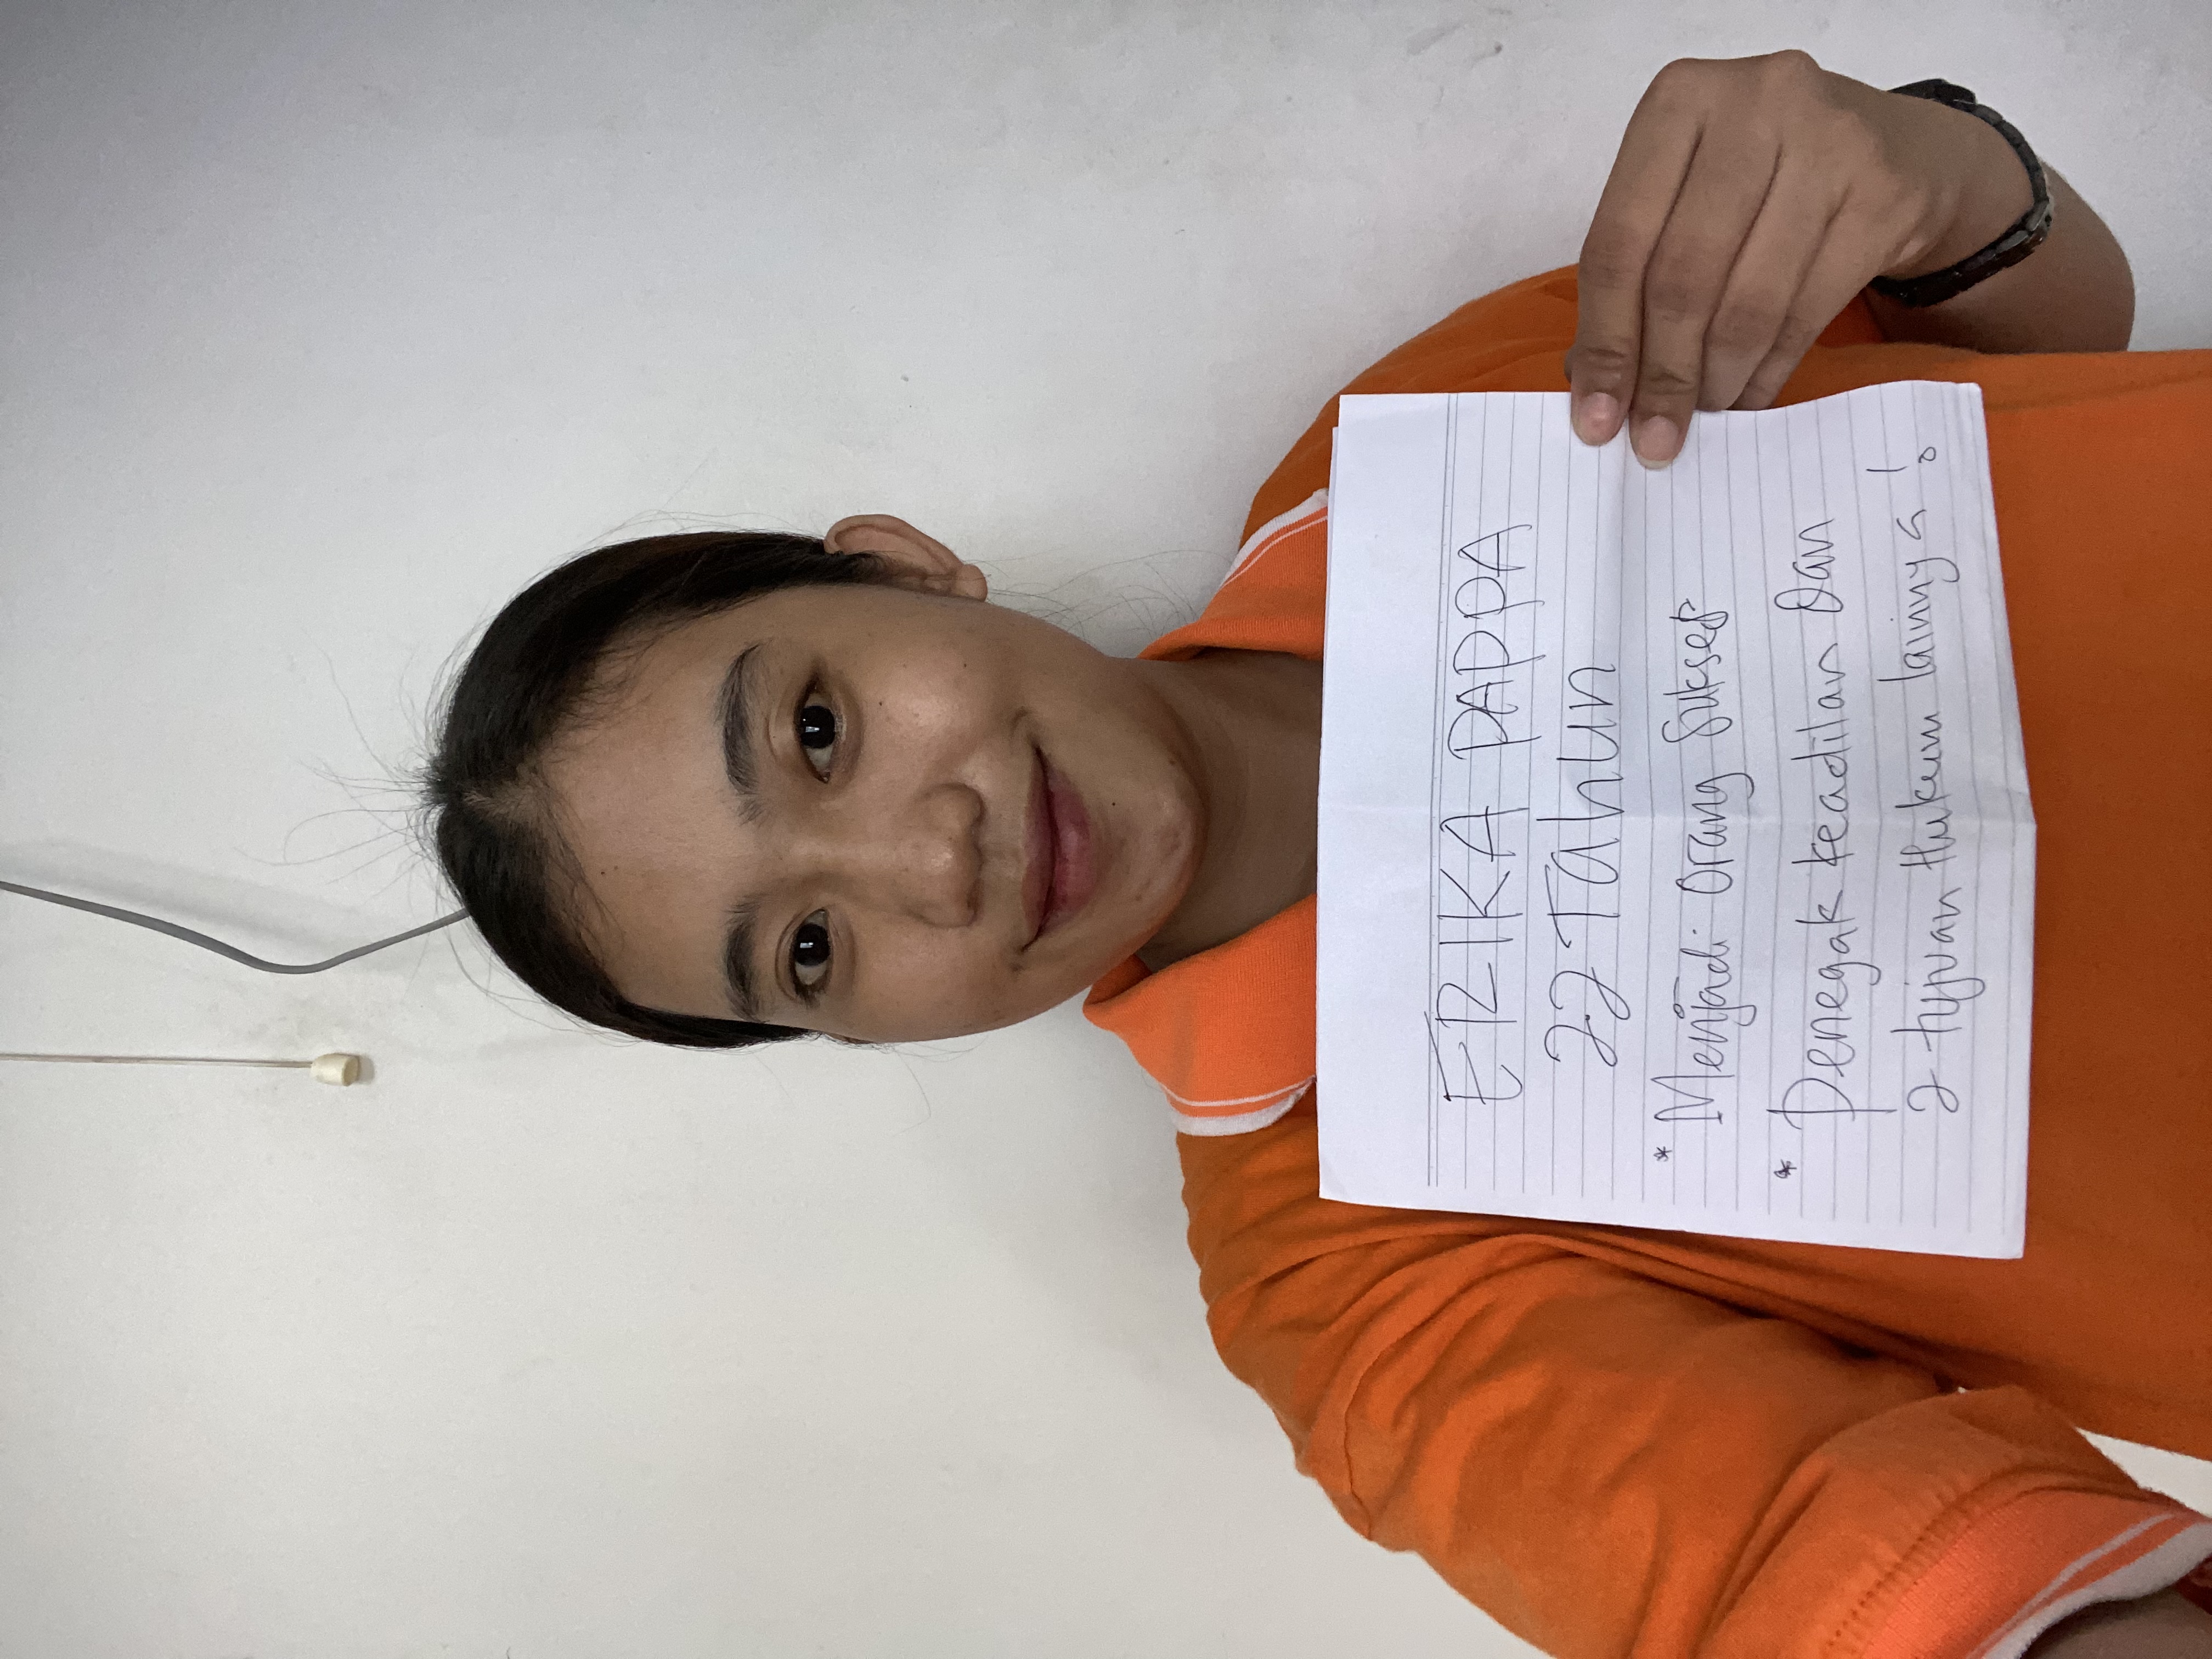 ERIKA PAPPA
22 Tahun
* Menjadi Orang Sukses
* Penegak keadilan Dan
2 tujuan Hukum lainnya !